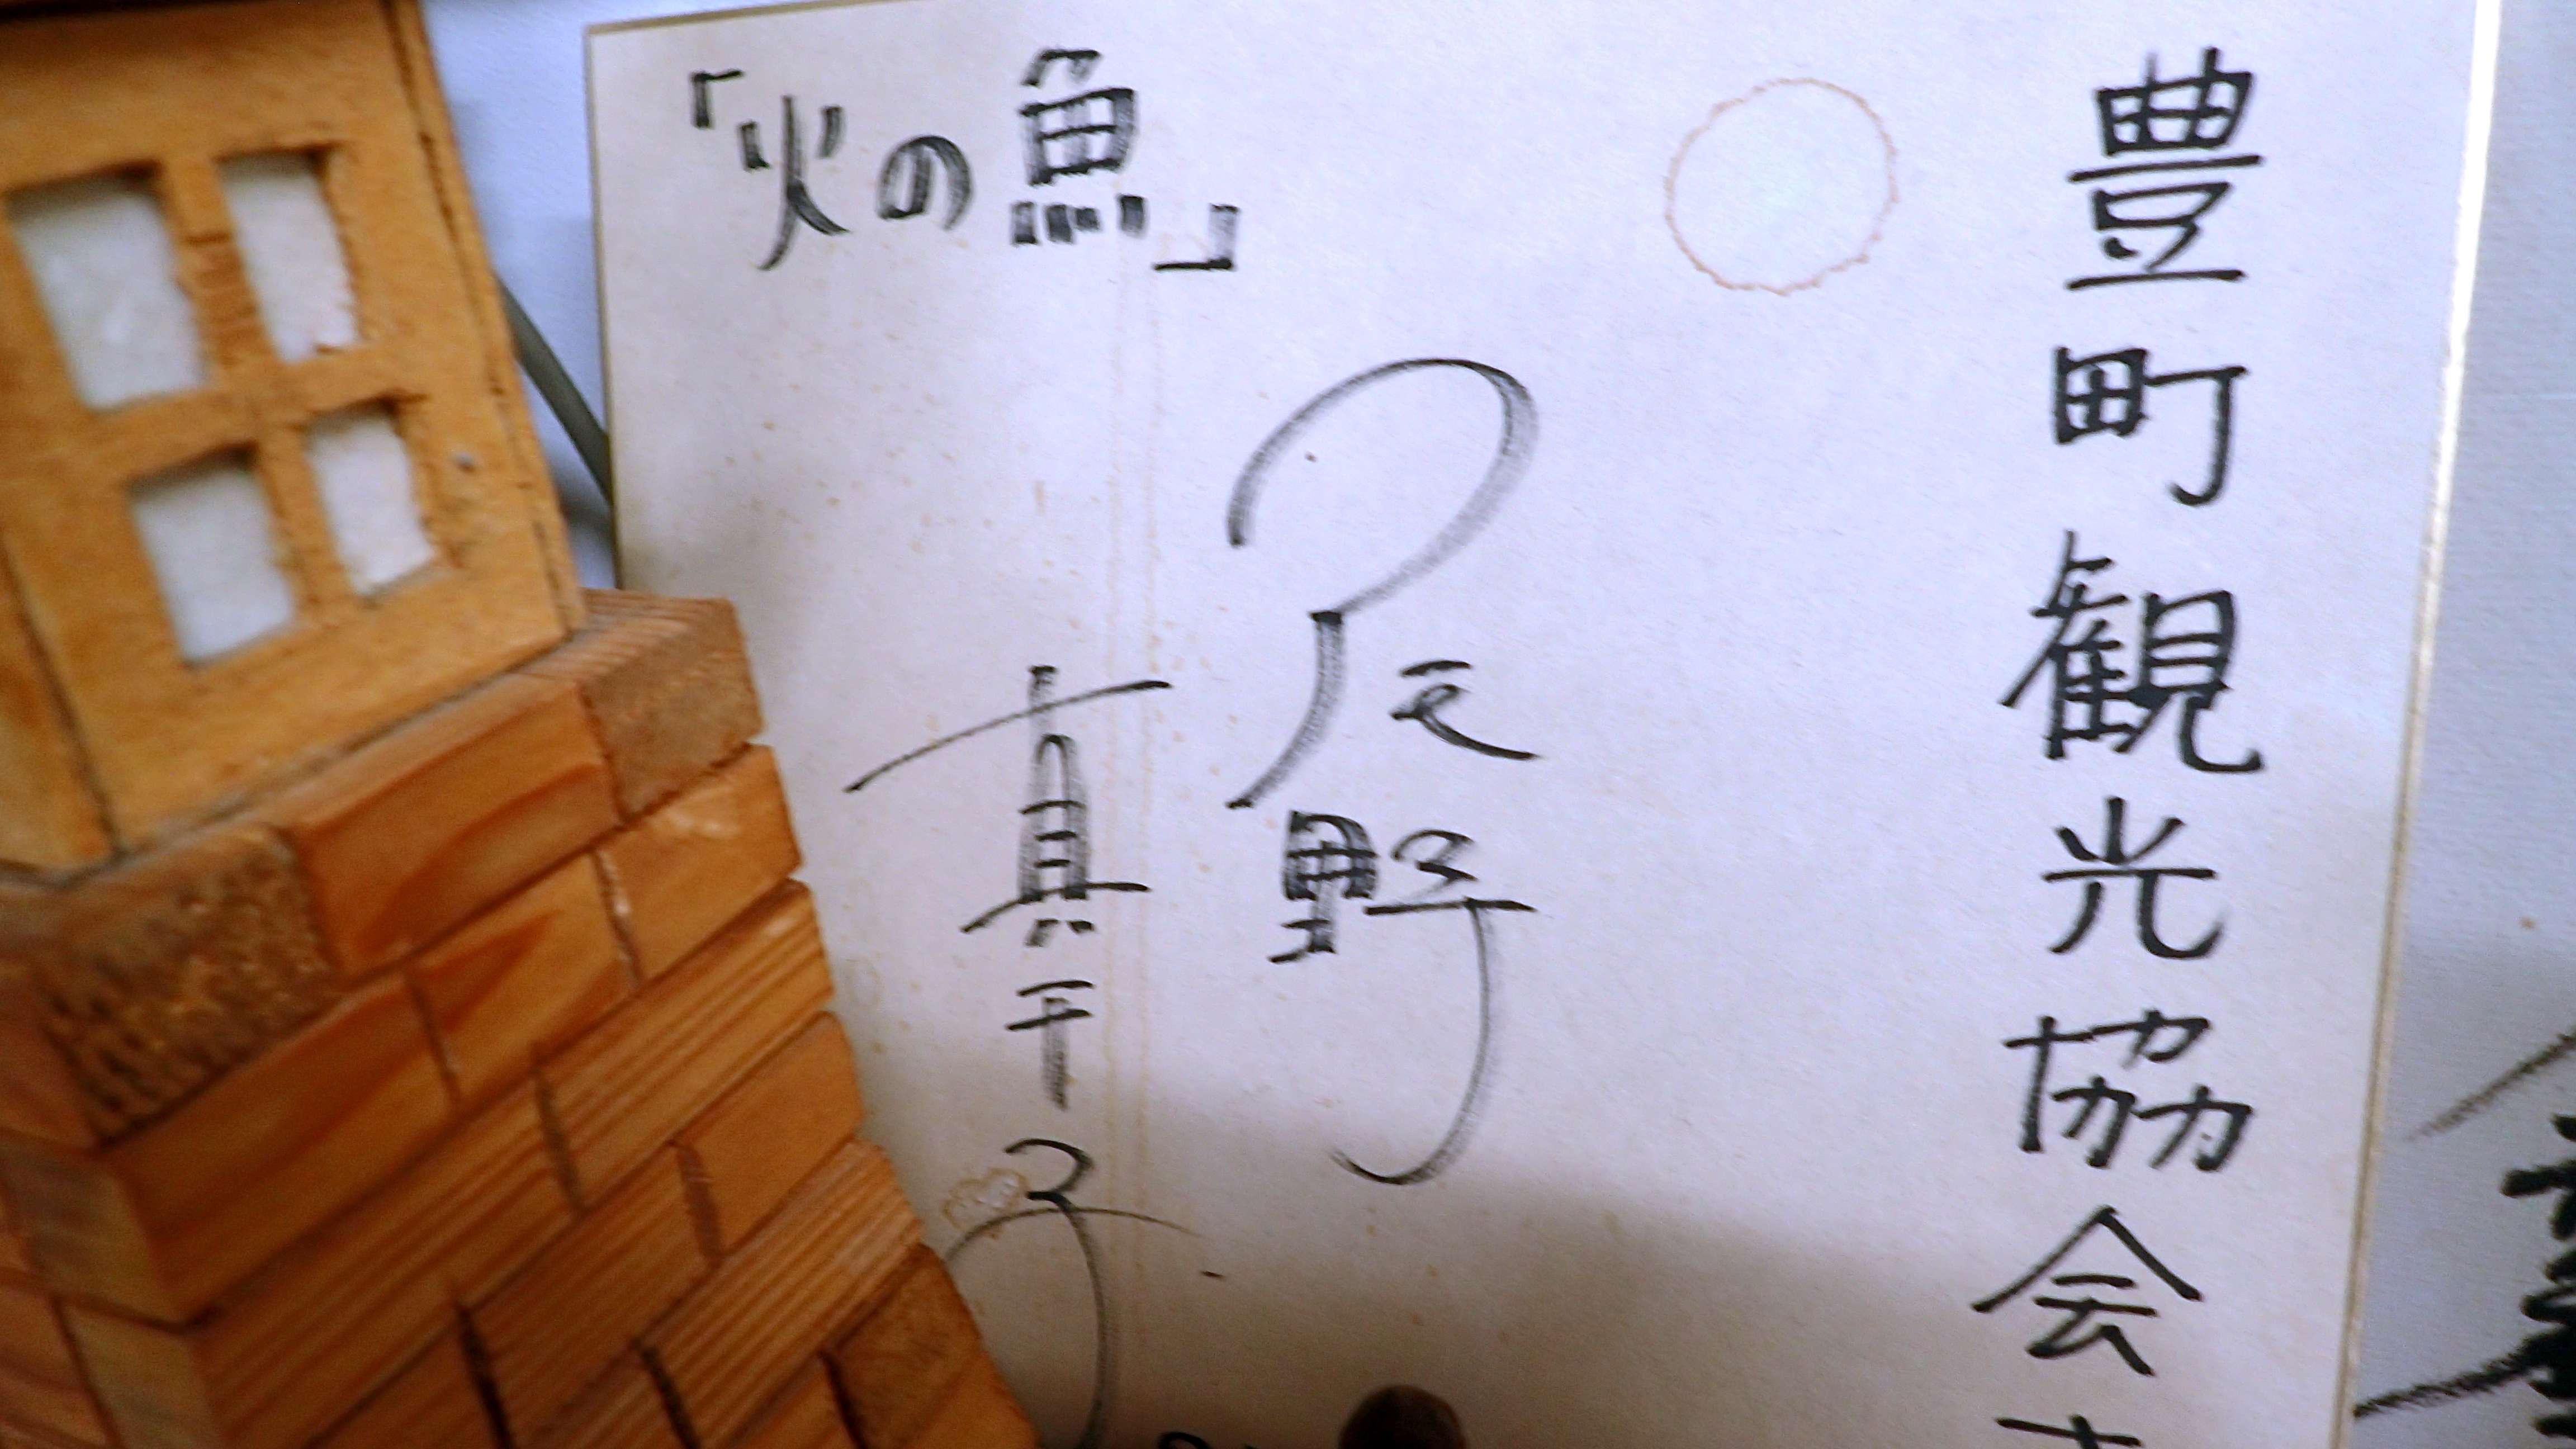 豊町観光協会
「火の魚」
尾野
真千子